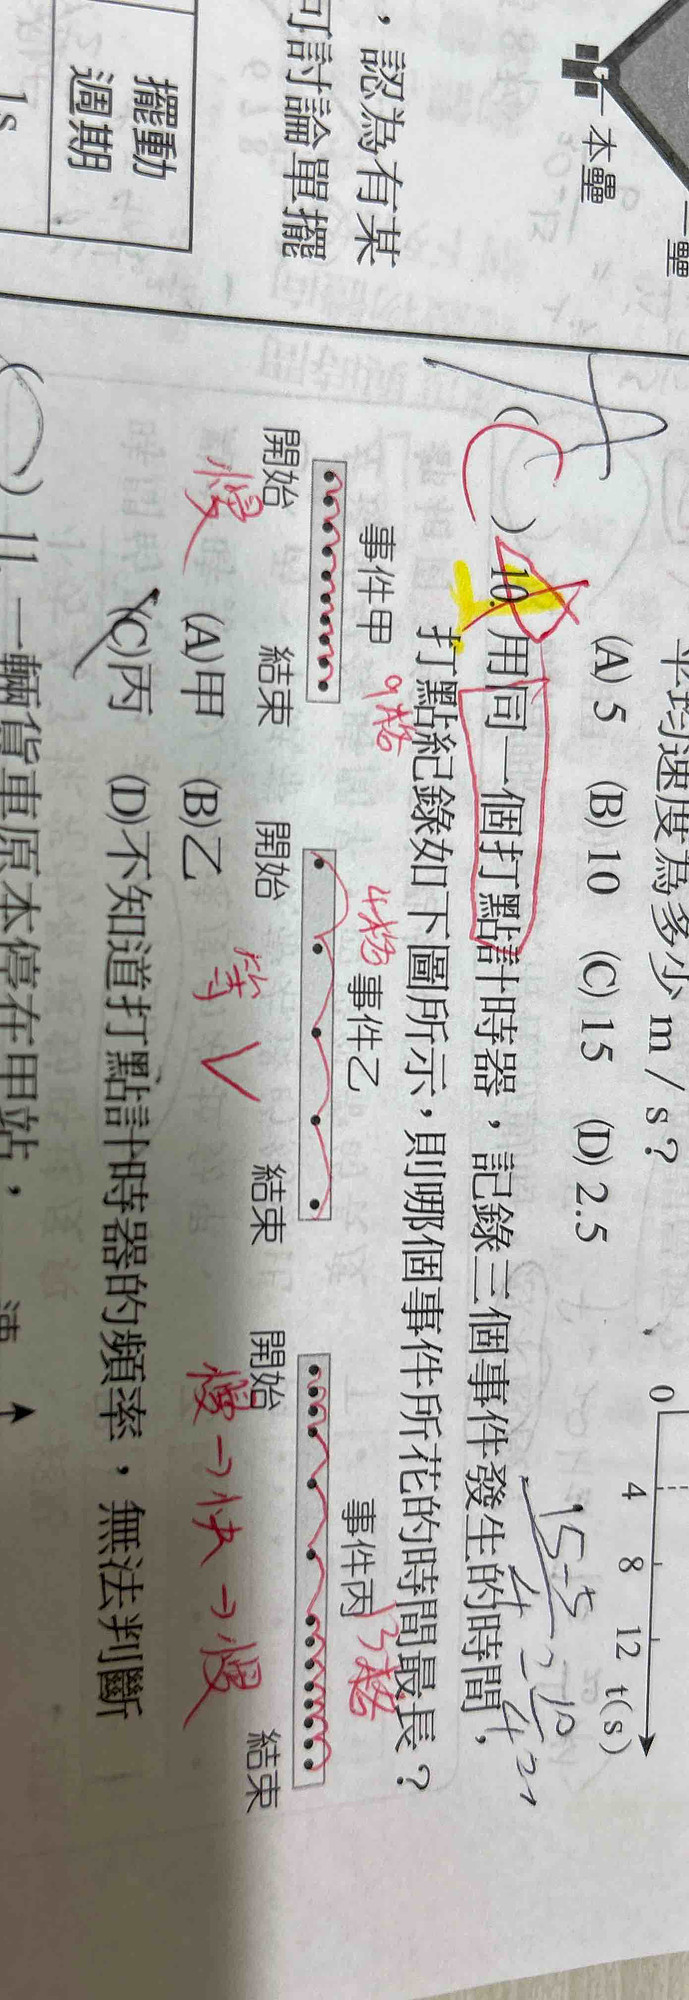 一壘
本壘
，認為有某
可討論單擺
擺動
週期
1s
平均速度為多少 m / s？
(A) 5 (B) 10 (C) 15 (D) 2.5
0 4 8 12 t(s)
A
( C ) 10. 用同一個打點計時器，記錄三個事件發生的時間，
打點紀錄如下圖所示，則哪個事件所花的時間最長？
事件甲 事件乙 事件丙
9格 4格 13格
開始 結束 開始 結束 開始 結束
慢 等 慢→快→慢
(A)甲 (B)乙
(C)丙 (D)不知道打點計時器的頻率，無法判斷
( ) 11. 一輛貨車原本停在甲站，